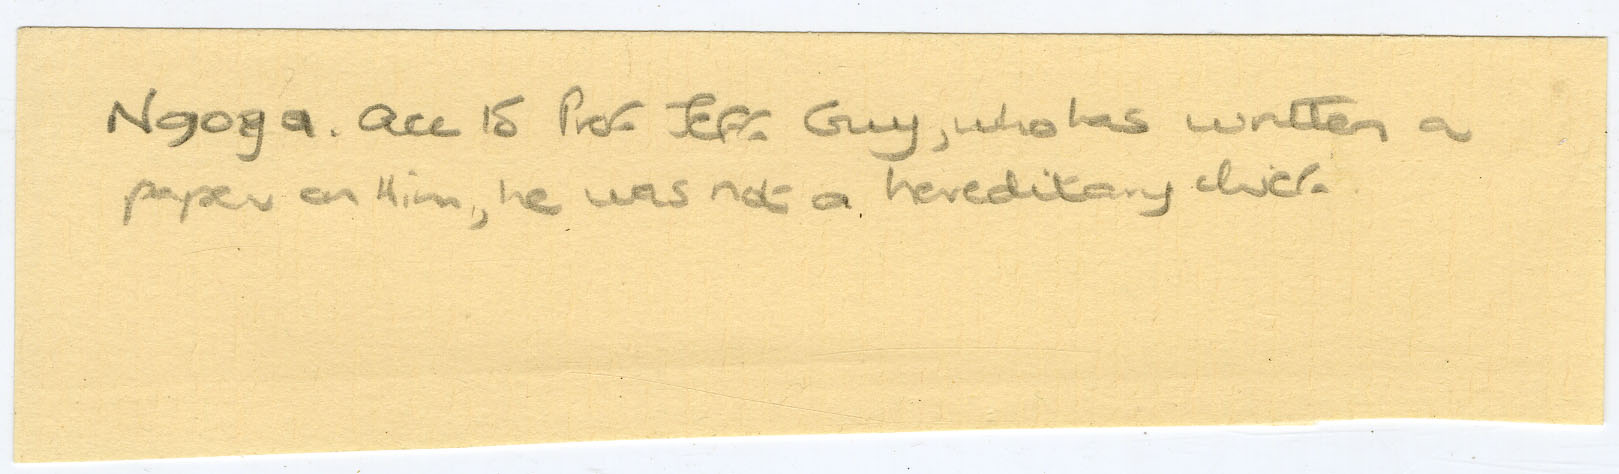 Ngoza. Acc to Prof. Jeff. Guy, who has written a
paper on Him, he was not a hereditary chief.